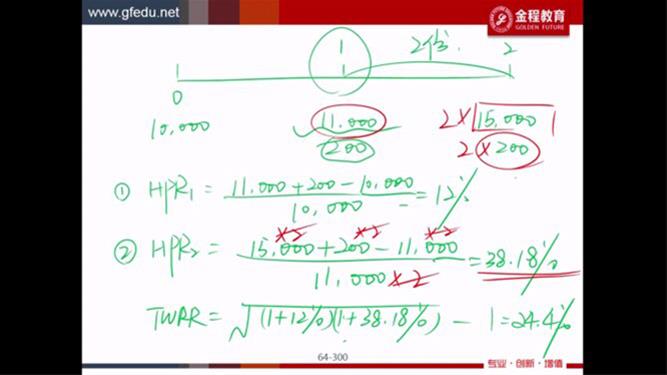 www.gfedu.net
金程教育
GOLDEN FUTURE
1 2份 2
0
10,000 11,000 2×15,000
200 2×200
① HPR₁ = (11,000+200-10,000)/10,000 = 12%
×2 ×2 ×2
② HPR₂ = (15,000+200-11,000)/(11,000×2) = 38.18%
TWRR = √(1+12%)(1+38.18%) - 1 = 24.4%
64-300
专业·创新·增值